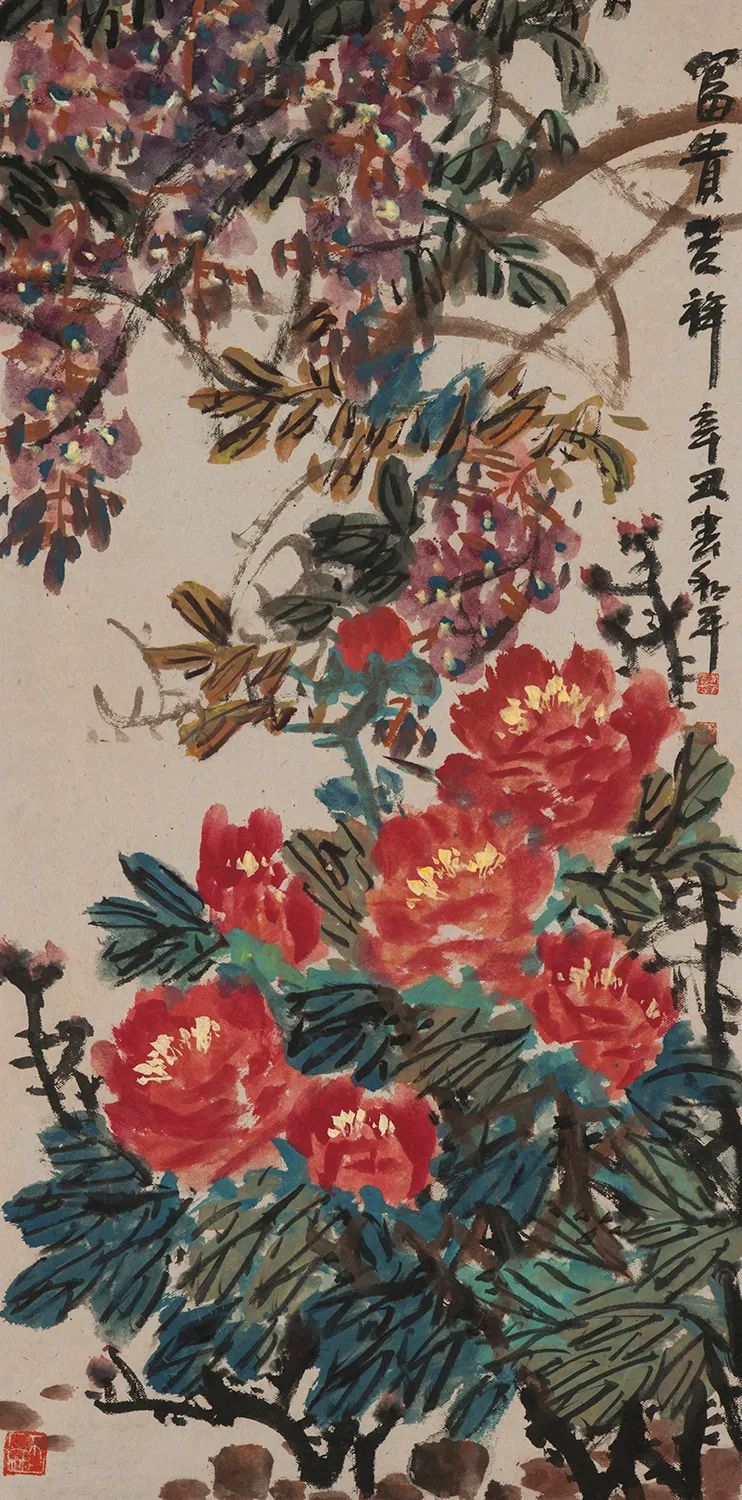 富貴吉祥 辛丑春和平